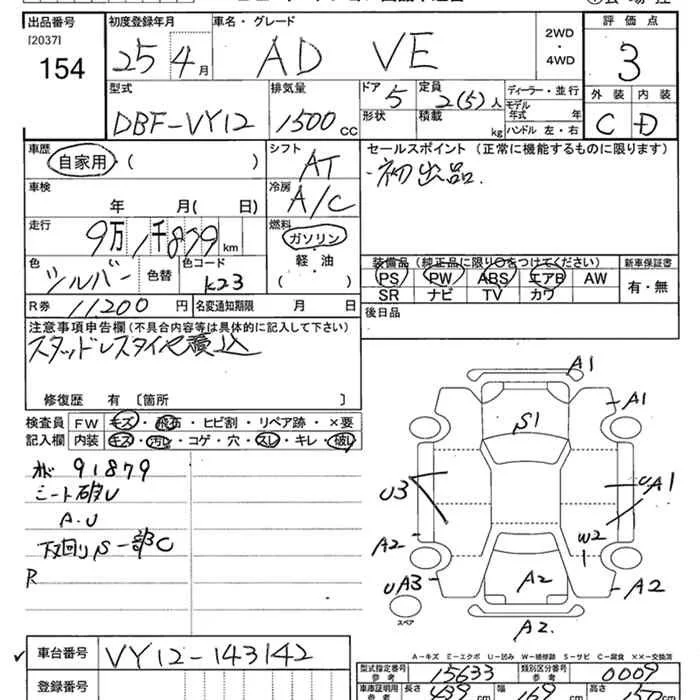 出品番号 初度登録年月 車名・グレード 評価点
[2037] 154 25 4月 AD VE 2WD ・ 4WD 3
型式 排気量 ドア 5 定員 2(5)人 ディーラー・並行 外装 内装
DBF-VY12 1500cc 形状 積載 kg モデル年式 年 C D
ハンドル 左・右
車歴 シフト セールスポイント(正常に機能するものに限ります)
自家用・( ) AT ・初出品.
車検 冷房
年 月( 日) A/C
走行 燃料
9万1千879km ガソリン 装備品(純正品に限り○をつけてください) 新車保証書
色 色替 色コード 軽・油 PS PW ABS エアB AW 有・無
シルバー K23 ( ) SR ナビ TV カワ
R券 11200円 名変通知期限 月 日 後日品
注意事項申告欄(不具合内容等は具体的に記入して下さい)
スタッドレスタイヤ積込
修復歴 有 〔箇所 〕
検査員 FW キズ・飛石・ヒビ割・リペア跡・×要
記入欄 内装 キズ・汚レ・コゲ・穴・スレ・キレ・破レ
91879
シート破レ
A.U
下回りS一部C
R
A1
A1
S1
U3 UA1
A2 W2
UA3 A2 A2
スペア
A2
A-キズ E-エクボ U-凹み W-補修跡 S-サビ C-腐食 ××-交換済
車台番号 VY12-143142 型式指定番号 参考 15633 類別区分番号 参考 0009
登録番号 車庫証明用 参考 長さ 439cm 幅 169cm 高さ 150cm